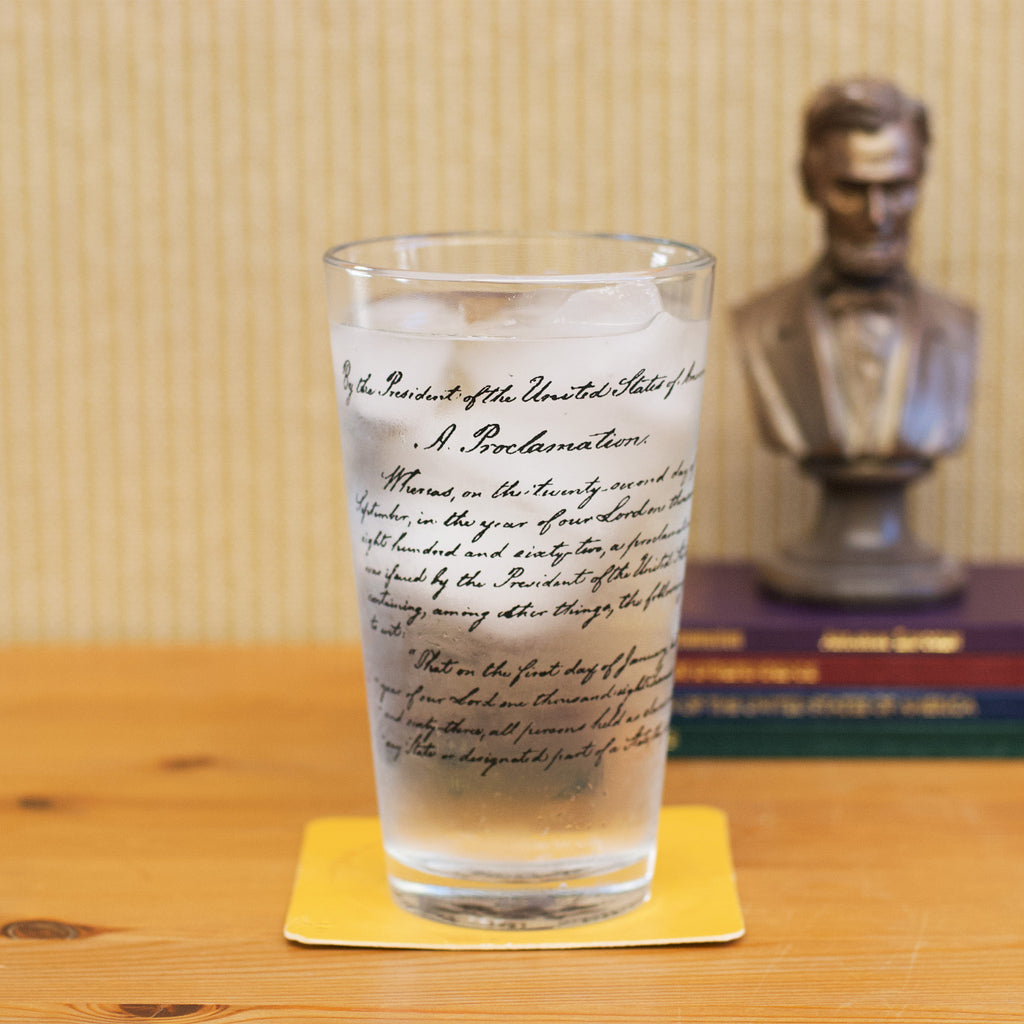 By the President of the United States of
A. Proclamation.
Whereas, on the twenty-second day
September, in the year of our Lord one
eight hundred and sixty-two, a
was issued by the President of the United
containing, among other things, the
to wit:
"That on the first day of January
"year of our Lord one thousand eight
"and sixty-three, all persons held as
"any State or designated part of a State,
OF THE UNITED STATES OF AMERICA